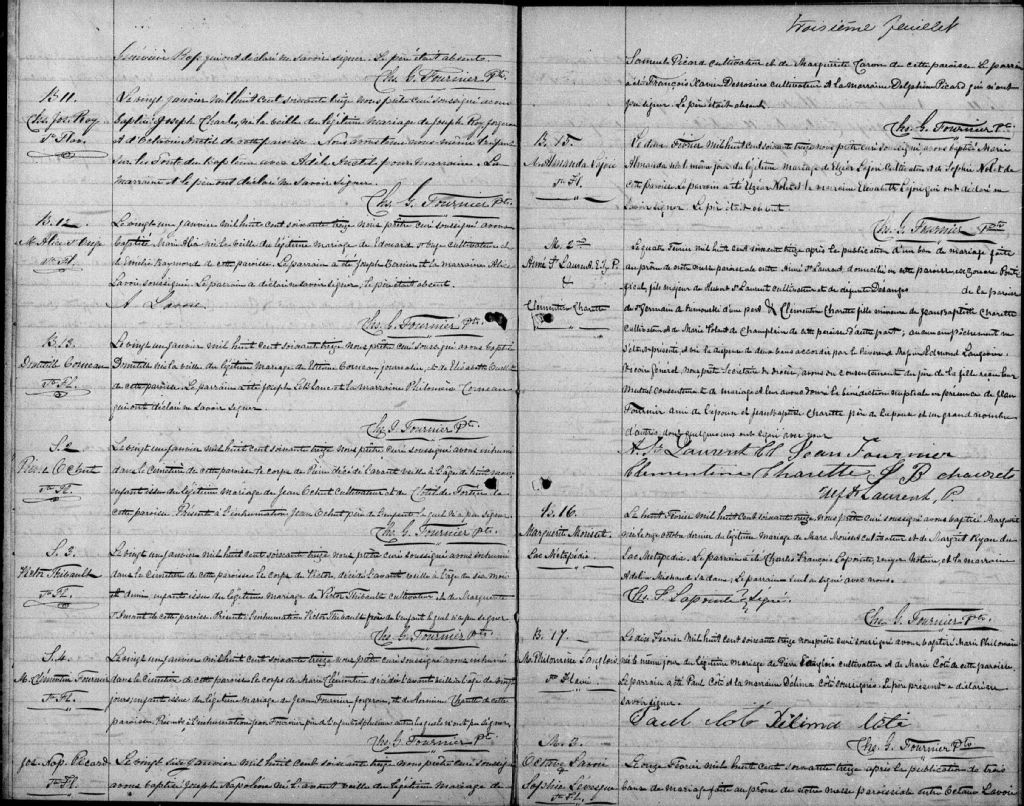 qui ont déclaré ne savoir signer. Le père était absent.
Chs. G. Fournier Ptr.
B. 11.
Chs. Jos. Roy
Ste Flav.
Le vingt janvier mil huit cent soixante treize nous prêtre curé soussigné avons
baptisé Joseph Charles, né la veille du légitime mariage de Joseph Roy
et d'Octavie de cette paroisse.
sur les Fonts du Baptême avec pour marraine. La
marraine et le père ont déclaré ne savoir signer.
Chs. G. Fournier Ptr.
B. 12
M. Alice
Ste Fl.
Le vingt un janvier mil huit cent soixante treize nous prêtre curé soussigné avons
baptisé Marie Alice née la veille du légitime mariage de Edouard cultivateur et
de Emélie Raymond de cette paroisse. Le parrain a été Joseph et la marraine Alice
Lavoie soussignée. Le parrain a déclaré ne savoir signer, le père était absent.
A. Lavoie.
Chs. G. Fournier Ptr.
B. 13.
Domitilde Comeau
Ste Fl.
Le vingt un janvier mil huit cent soixante treize nous prêtre curé soussigné avons baptisé
Domitilde née la veille du légitime mariage de Comeau journalier, et de Elisabeth
de cette paroisse. Le parrain a été Joseph LeBlanc et la marraine Philomène Comeau
qui ont déclaré ne savoir signer
Chs. G. Fournier Ptr.
S. 2
Pierre Ochut
Ste Fl.
Le vingt un janvier mil huit cent soixante treize nous prêtre curé soussigné avons inhumé
dans le cimetière de cette paroisse le corps de Pierre décédé l'avant veille à l'âge de huit mois
enfant issu du légitime mariage de Jean Ochut cultivateur et de Clotilde Fortin de
cette paroisse. Présent à l'inhumation Jean Ochut père de l'enfant lequel n'a pu signer
Chs. G. Fournier Ptr.
S. 3.
Victor Thibault
Ste Fl.
Le vingt un janvier mil huit cent soixante treize nous prêtre curé soussigné avons inhumé
dans le cimetière de cette paroisse le corps de Victor, décédé l'avant veille à l'âge de six mois
et demi enfant issu du légitime mariage de Victor Thibault cultivateur et de Marguerite
St Amant de cette paroisse. Présent à l'inhumation Victor Thibault père de l'enfant lequel n'a pu signer
Chs. G. Fournier Ptr.
S. 4
M. Clémentine Fournier
Ste Fl.
Le vingt un janvier mil huit cent soixante treize nous prêtre curé soussigné avons inhumé
dans le cimetière de cette paroisse le corps de Marie Clémentine décédée l'avant veille à l'âge de vingt
jours, enfant issue du légitime mariage de Jean Fournier forgeron, et de de cette
paroisse. Présents à l'inhumation Fournier père de l'enfant lesquels n'ont pu signer
Chs. G. Fournier Ptr.
Jos. Nap. Picard
Ste Fl.
Le vingt six janvier mil huit cent soixante treize nous prêtre curé soussigné
avons baptisé Joseph Napoléon né l'avant veille du légitime mariage de
troisième feuillet
Samuel Picard cultivateur et de Marguerite Caron de cette paroisse. Le parrain
a été François Xavier cultivateur et la marraine Delphine Picard qui n'ont
pu signer. Le père était absent.
Chs. G. Fournier Ptr.
B. 15.
M. Almanda Lajoie
Ste Fl.
Le deux Février mil huit cent soixante treize nous prêtre curé soussigné, avons baptisé Marie
Almanda née le même jour du légitime mariage de Elzéar Lajoie cultivateur et de Sophie Nolet de
cette paroisse. Le parrain a été Elzéar Nolet et la marraine Elizabeth Lajoie qui ont déclaré ne
savoir signer. Le père était absent.
Chs. G. Fournier Ptre
M. 2nd
Aimé St Laurent, P.
&
Clémentine Charette
Le quatre Février mil huit cent soixante treize après la publication d'un ban de mariage faite
au prône de notre messe paroissiale entre Aimé St Laurent domicilié en cette paroisse, ex Zouave Ponti-
fical, fils majeur de St Laurent cultivateur et de Desanges de la paroisse
de St Germain de Rimouski d'une part & Clémentine Charette fille mineure de Jean Baptiste Charette
cultivateur et de Marie de cette paroisse d'autre part ; aucun empêchement ne
s'étant présenté, et vu la dispense de deux bans accordée par le Révérend Edmond Langevin
Vicaire Général nous prêtre avons du consentement du père de la fille reçu leur
mutuel consentement de mariage et leur avons donné la bénédiction nuptiale en présence de Jean
Fournier ami de l'époux et Jean Baptiste Charette père de l'épouse et un grand nombre
d'autres dont quelques uns ont signé avec nous
A. St Laurent Jean Fournier
Clémentine Charette J B chaurete
St Laurent, P.
B. 16.
Marguerite Monset
Lac Métapédia
Le huit Février mil huit cent soixante treize, nous prêtre curé soussigné avons baptisé Marguerite
née le vingt octobre dernier du légitime mariage de Marc Monset cultivateur et de Margret Ryan du
Lac Métapédia. Le parrain a été Charles François Lapointe écuyer Notaire, et la marraine
Adeline Michaud sa dame. Le parrain seul a signé avec nous.
Chs. F. Lapointe Signé.
Chs. G. Fournier Ptr.
B. 17.
M. Philomène Langlois
Ste Flavie.
Le dix Février mil huit cent soixante treize nous prêtre curé soussigné avons baptisé Marie Philomène
née le même jour du légitime mariage de Pierre Langlois cultivateur et de Marie Coté de cette paroisse.
Le parrain a été Paul Coté et la marraine Délima Coté soussignés. Le père présent a déclaré ne
savoir signer.
Paul Coté Délima Coté
Chs. G. Fournier Ptr
M. 3.
Octave Lavoie
Sophie Levesque
Ste Fl.
Le onze Février mil huit cent soixante treize après la publication de trois
bans de mariage faite au prône de notre messe paroissiale entre Octave Lavoie